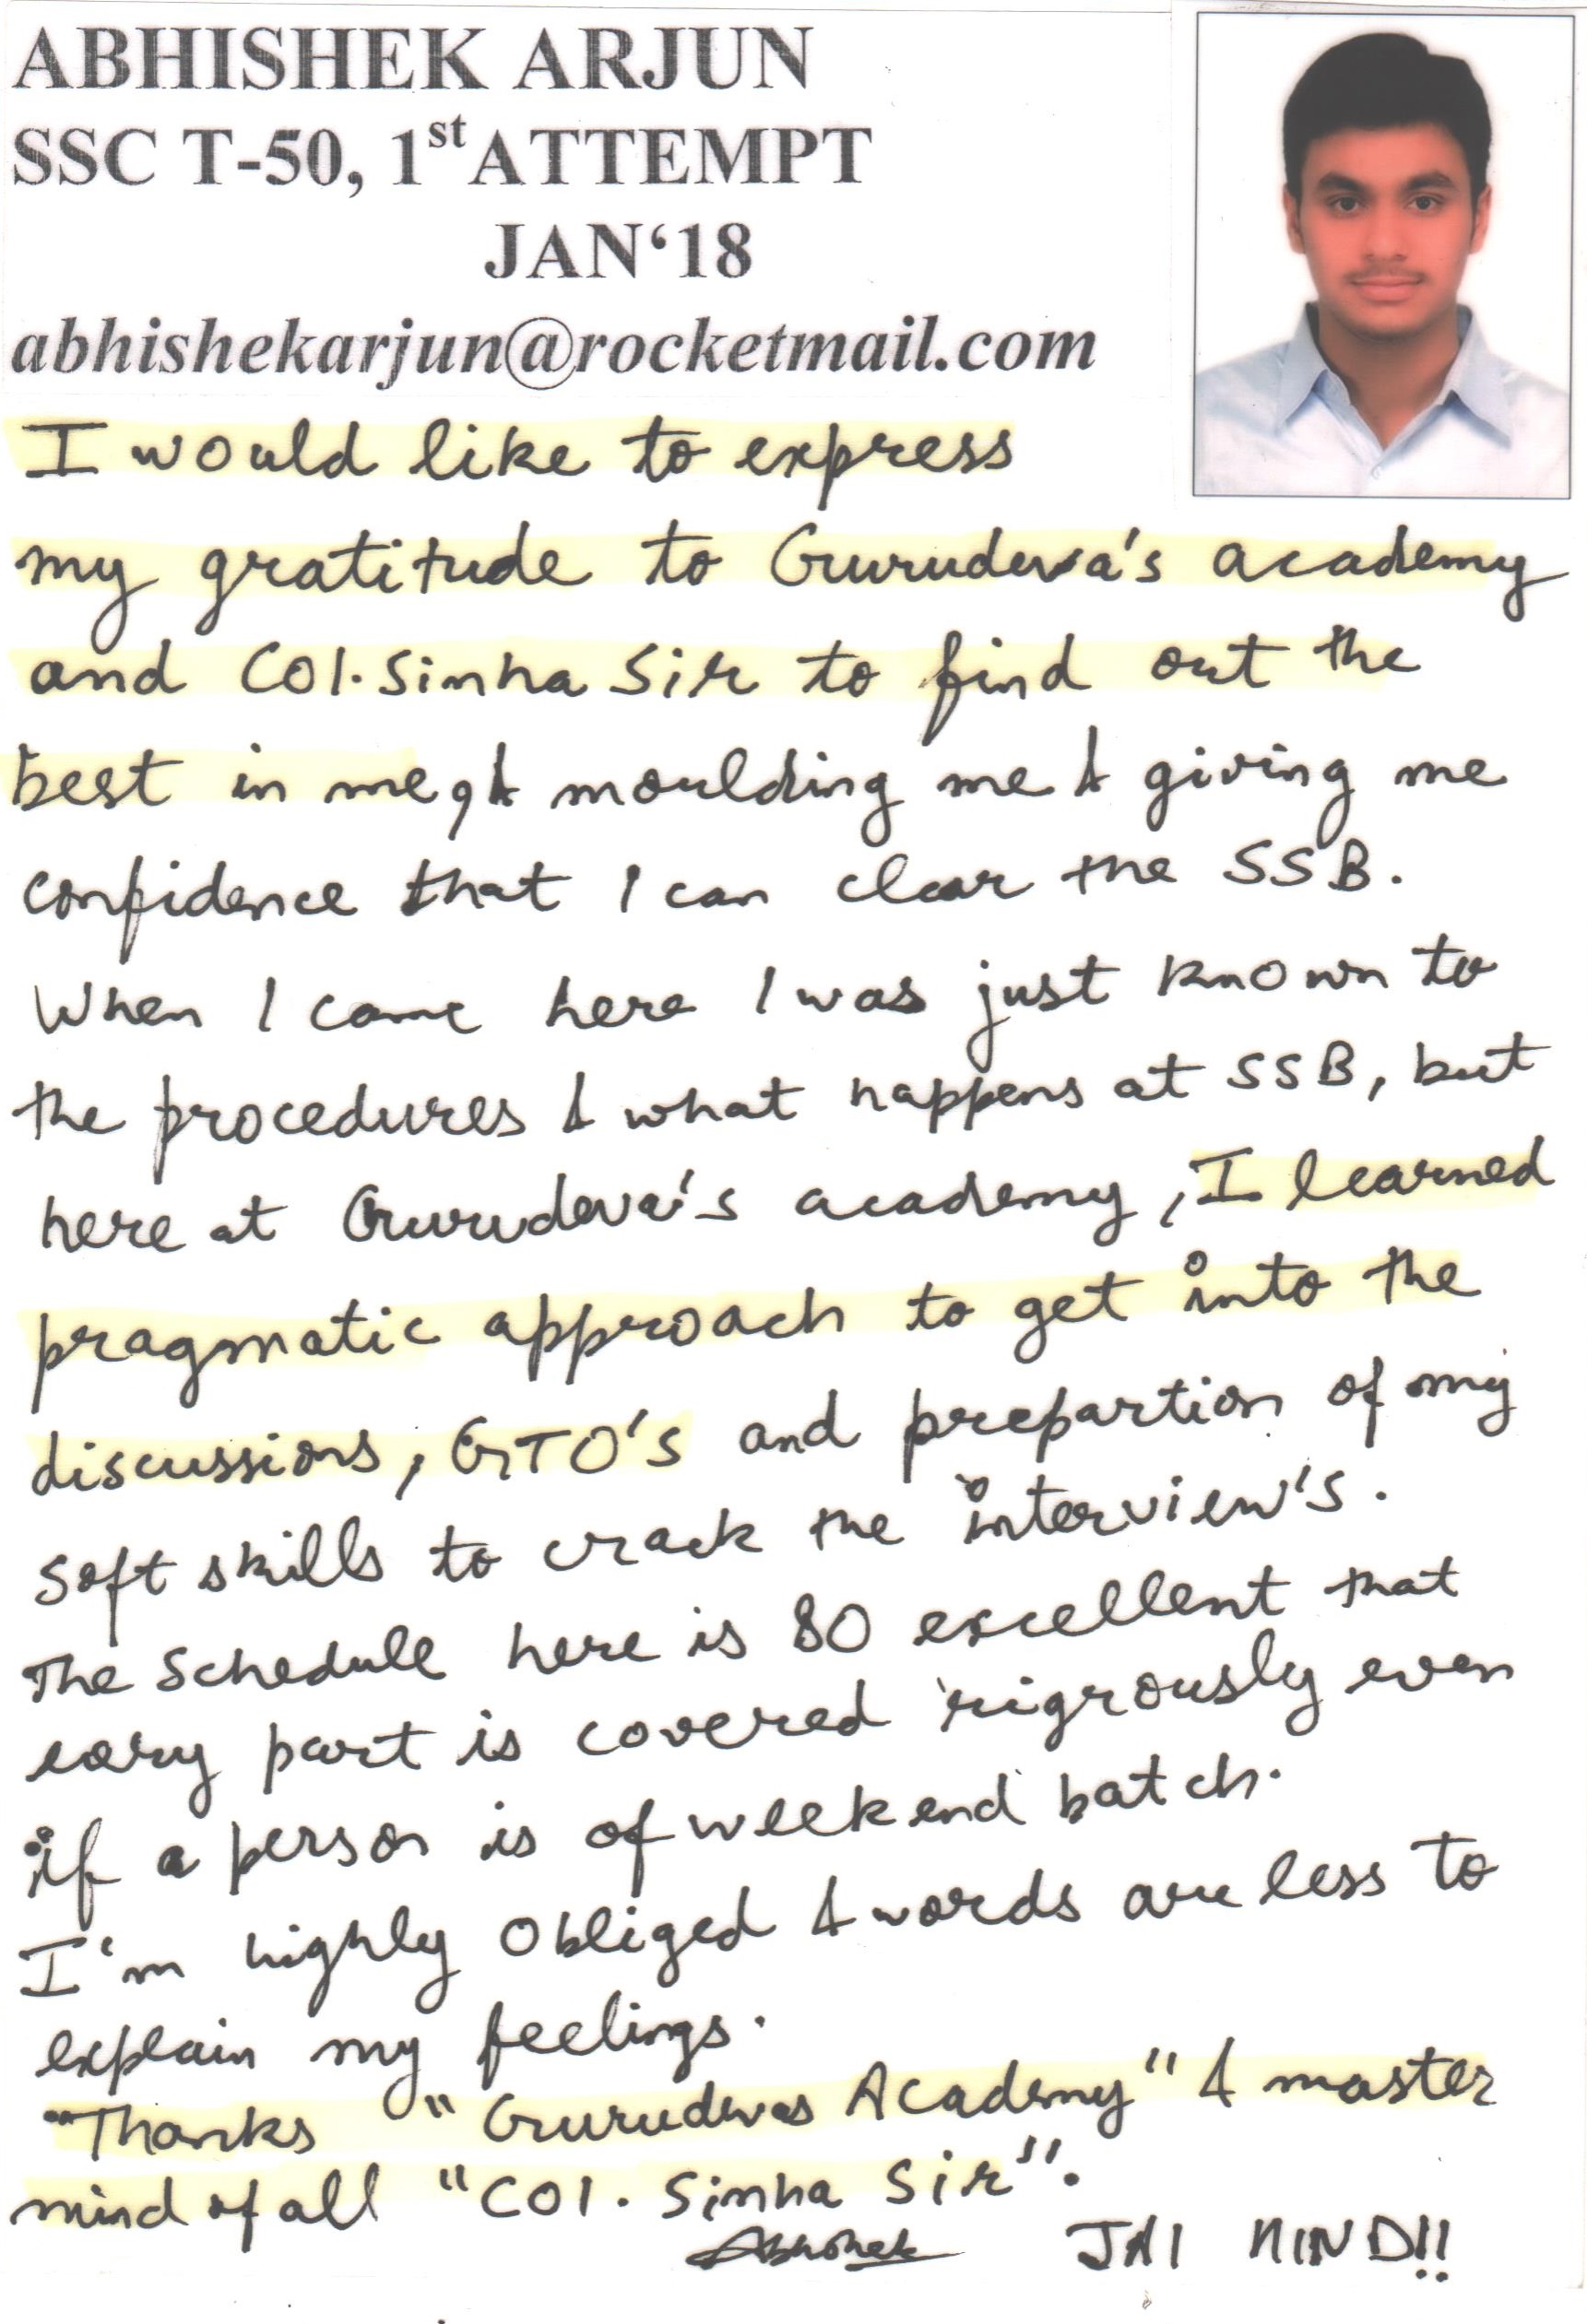 ABHISHEK ARJUN
SSC T-50, 1st ATTEMPT
JAN‘18
abhishekarjun@rocketmail.com
I would like to express
my gratitude to Gurudeva's academy
and Col. Sinha Sir to find out the
best in me, & moulding me & giving me
confidence that I can clear the SSB.
When I came here I was just known to
the procedures & what happens at SSB, but
here at Gurudeva's academy, I learned
pragmatic approach to get into the
discussions, GTO's and prepartion of my
soft skills to crack the interview's.
The Schedule here is SO excellent that
eavry part is covered rigrously even
if a person is of weekend batch.
I'm highly obliged & words are less to
explain my feelings.
"Thanks "Gurudevas Academy" & master
mind of all "Col. Sinha Sir".
Abhishek JAI HIND!!